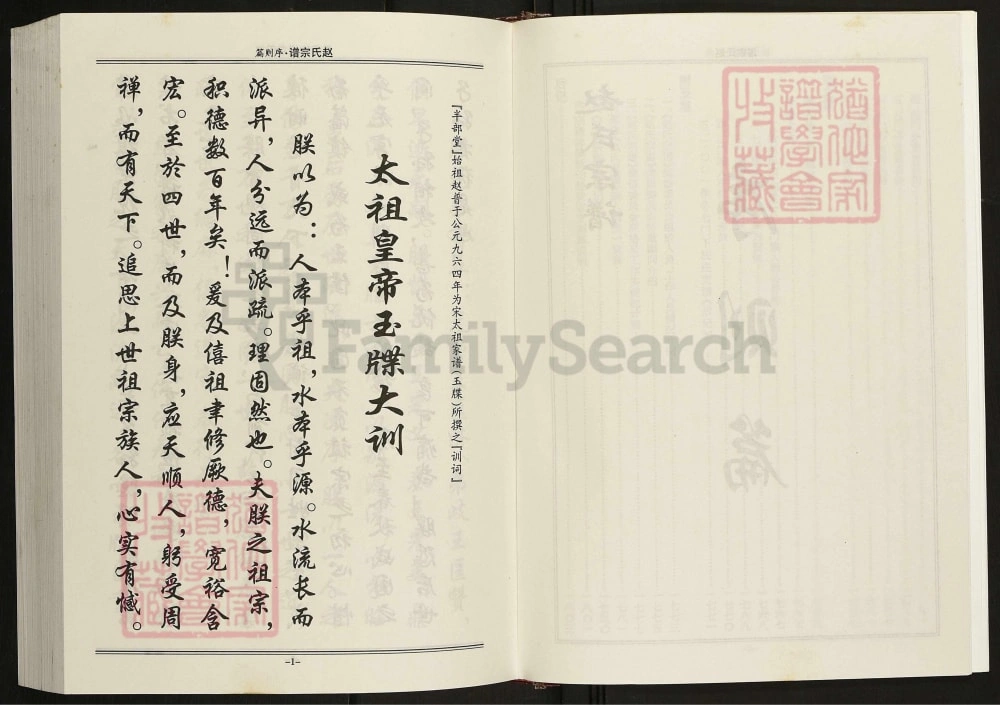 赵氏宗谱·序则篇
『半部堂』始祖赵普于公元九六四年为宋太祖家谱(玉牒)所撰之『训词』
太祖皇帝玉牒大训
朕以为:人本乎祖,水本乎源。水流长而
派异,人分远而派疏。理固然也。夫朕之祖宗,
积德数百年矣!爰及僖祖聿修厥德,宽裕含
宏。至於四世,而及朕身,应天顺人,躬受周
禅,而有天下。追思上世祖宗族人,心实有憾。
-1-
FamilySearch
猶他家
譜學會
收藏
猶他家
譜學會
收藏